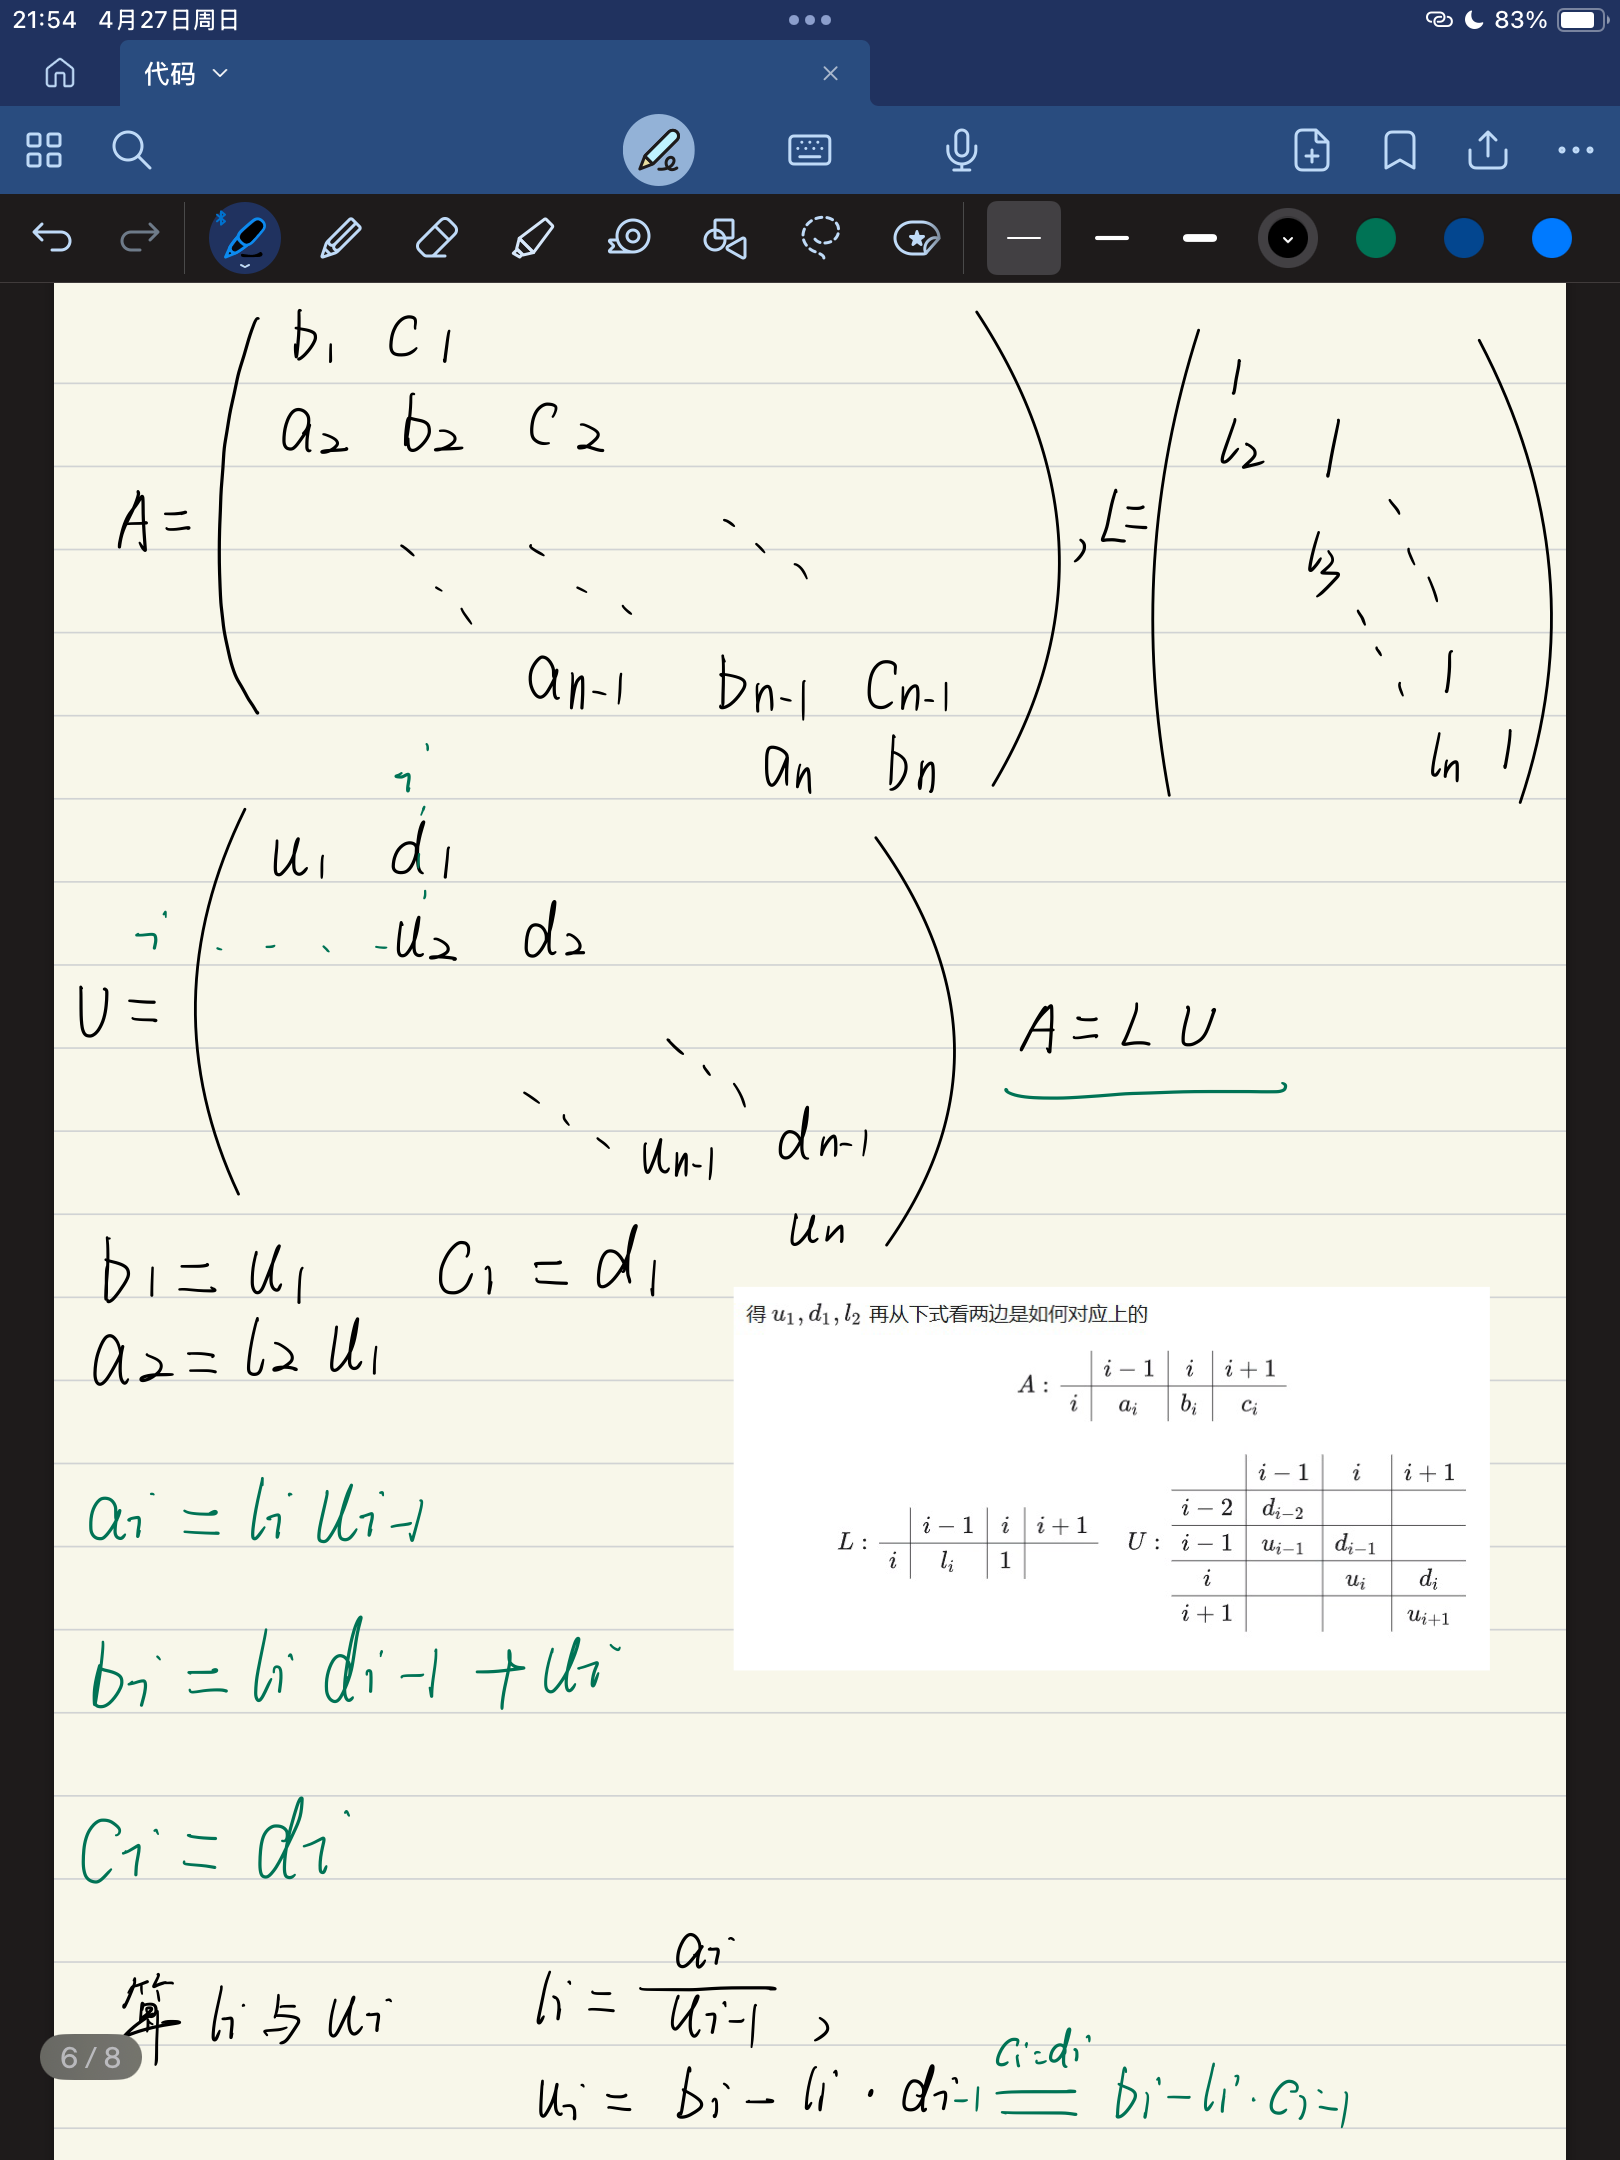 21:54 4月27日周日 83%
代码
A = ( b₁ c₁
a₂ b₂ c₂
⋱ ⋱ ⋱
aₙ₋₁ bₙ₋₁ cₙ₋₁
aₙ bₙ ) , L = ( 1
l₂ 1
l₃ ⋱
⋱ 1
lₙ 1 )
i
U = ( u₁ d₁
i u₂ d₂
⋱ ⋱
uₙ₋₁ dₙ₋₁
uₙ )
A = L U
b₁ = u₁ c₁ = d₁
a₂ = l₂ u₁
得 u₁, d₁, l₂ 再从下式看两边是如何对应上的
A : i − 1 i i + 1
i aᵢ bᵢ cᵢ
L : i − 1 i i + 1
i lᵢ 1
U : i − 1 i i + 1
i − 2 dᵢ₋₂
i − 1 uᵢ₋₁ dᵢ₋₁
i uᵢ dᵢ
i + 1 uᵢ₊₁
aᵢ = lᵢ uᵢ₋₁
bᵢ = lᵢ dᵢ₋₁ + uᵢ
cᵢ = dᵢ
算 lᵢ 与 uᵢ lᵢ = aᵢ / uᵢ₋₁ ,
cᵢ = dᵢ
uᵢ = bᵢ − lᵢ · dᵢ₋₁ = bᵢ − lᵢ · cᵢ₋₁
6 / 8